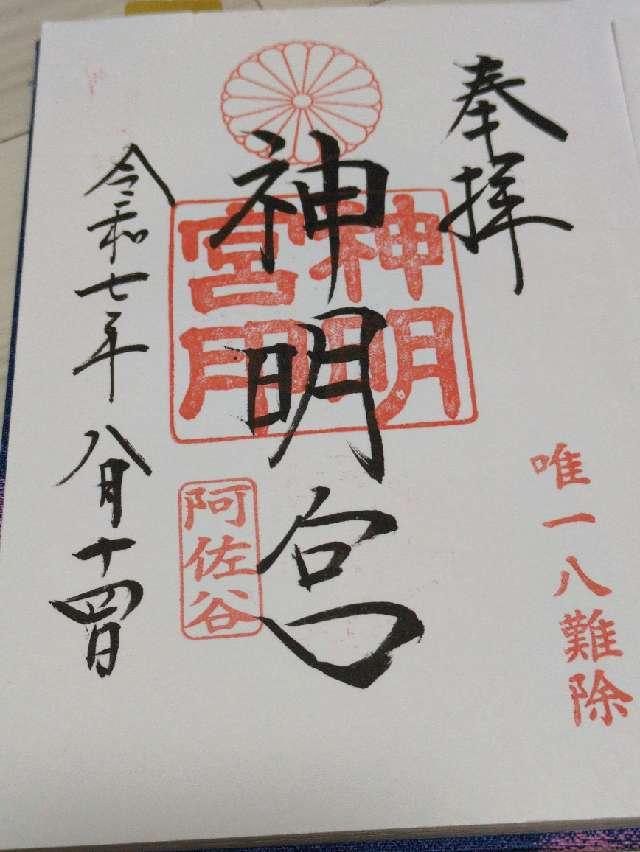 奉拝
唯一八難除
神明宮
神明
宮用
阿佐谷
令和七年八月十四日